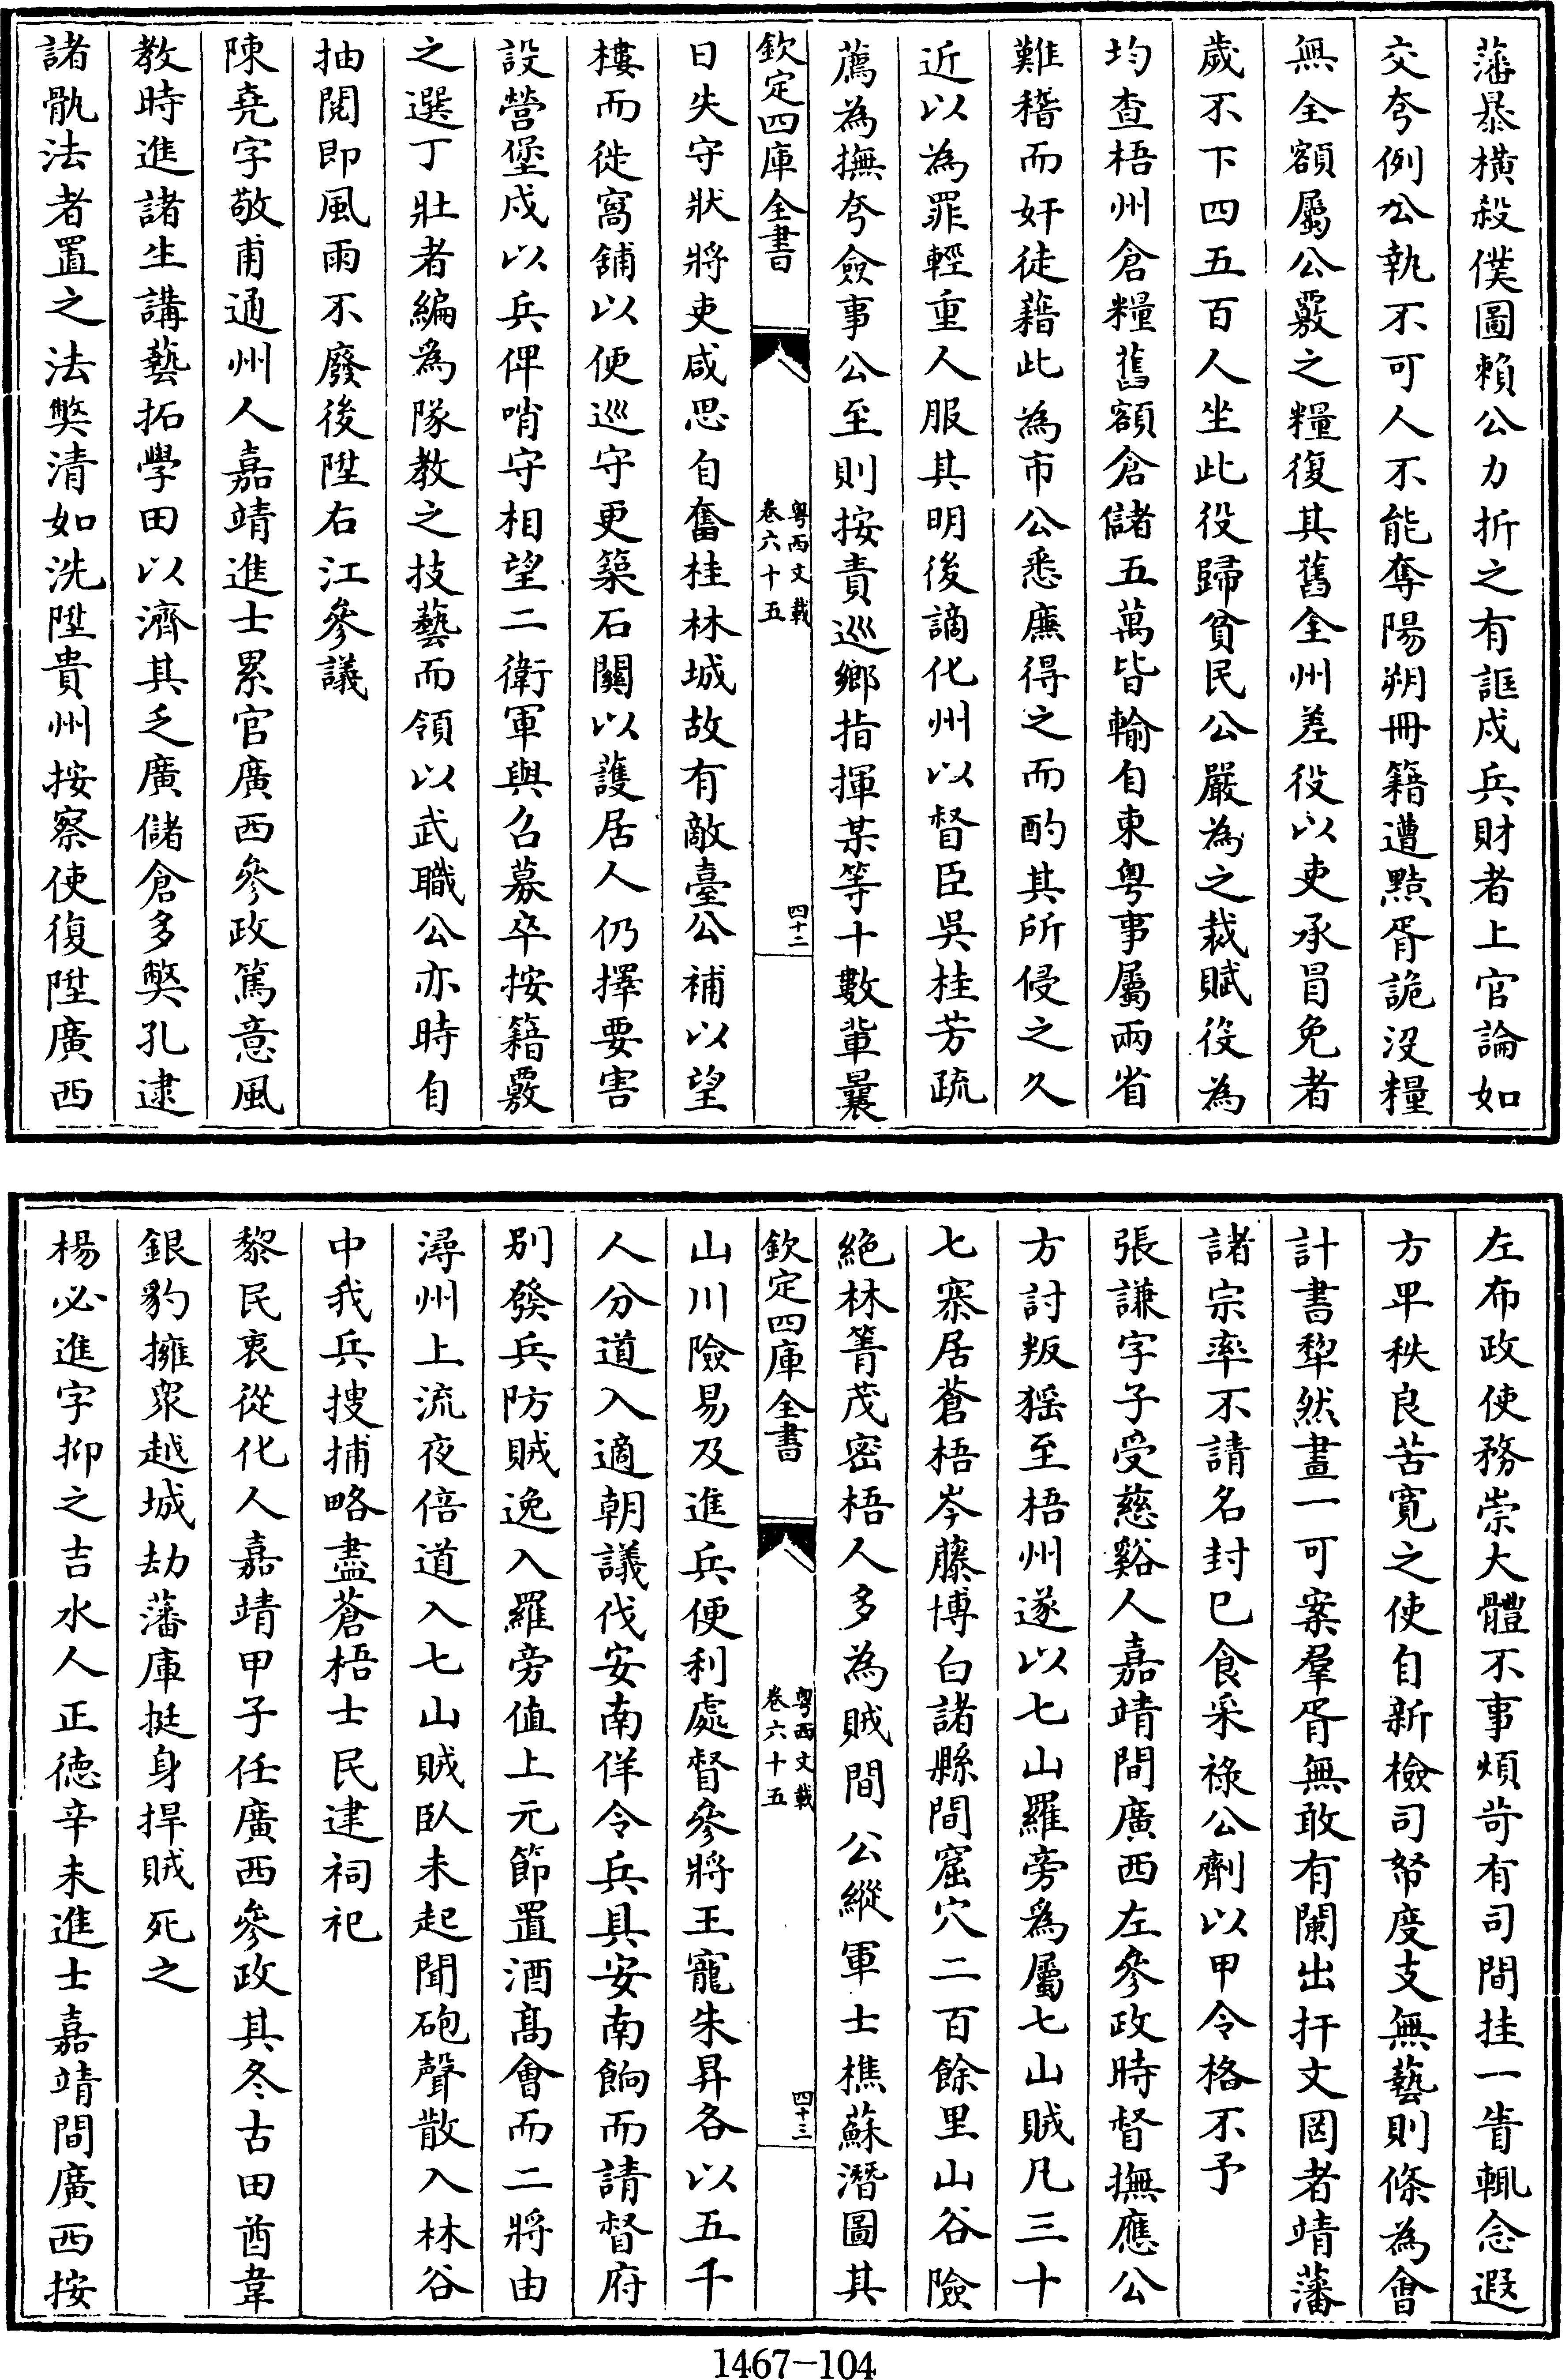 藩暴橫殺僕圖賴公力折之有誆戍兵財者上官論如
交夸例公執不可人不能奪陽朔冊籍遭黠胥詭沒糧
無全額屬公覈之糧復其舊全州差役以吏承冒免者
歲不下四五百人坐此役歸貧民公嚴為之裁賦役為
均查梧州倉糧舊額倉儲五萬皆輸自東粤事屬兩省
難稽而奸徒藉此為市公悉廉得之而酌其所侵之久
近以為罪輕重人服其明後謫化州以督臣吳桂芳疏
薦為撫夸僉事公至則按責巡鄉指揮某等十數輩曩
欽定四庫全書
粤西文載
卷六十五
四十二
日失守狀將吏咸思自奮桂林城故有敵臺公補以望
樓而徙窩舖以便巡守更築石關以護居人仍擇要害
設營堡戍以兵俾哨守相望二衛軍與召募卒按籍覈
之選丁壯者編為隊教之技藝而領以武職公亦時自
抽閱即風雨不廢後陞右江參議
陳堯字敬甫通州人嘉靖進士累官廣西參政篤意風
教時進諸生講藝拓學田以濟其乏廣儲倉多獘孔逮
諸骩法者置之法獘清如洗陞貴州按察使復陞廣西
左布政使務崇大體不事煩苛有司間挂一眚輒念遐
方平秩良苦寛之使自新檢司帑度支無藝則條為會
計書犂然畫一可案羣胥無敢有闌出扞文罔者靖藩
諸宗率不請名封已食采祿公劑以甲令格不予
張謙字子受慈谿人嘉靖間廣西左參政時督撫應公
方討叛猺至梧州遂以七山羅旁為屬七山賊凡三十
七寨居蒼梧岑藤博白諸縣間窟穴二百餘里山谷險
絕林箐茂密梧人多為賊間公縱軍士樵蘇潛圖其
欽定四庫全書
粤西文載
卷六十五
四十三
山川險易及進兵便利處督參將王寵朱昇各以五千
人分道入適朝議伐安南佯令兵具安南餉而請督府
別發兵防賊逸入羅旁值上元節置酒髙會而二將由
潯州上流夜倍道入七山賊臥未起聞砲聲散入林谷
中我兵搜捕略盡蒼梧士民建祠祀
黎民衷從化人嘉靖甲子任廣西參政其冬古田酋韋
銀豹擁衆越城劫藩庫挺身捍賊死之
楊必進字抑之吉水人正徳辛未進士嘉靖間廣西按
1467-104